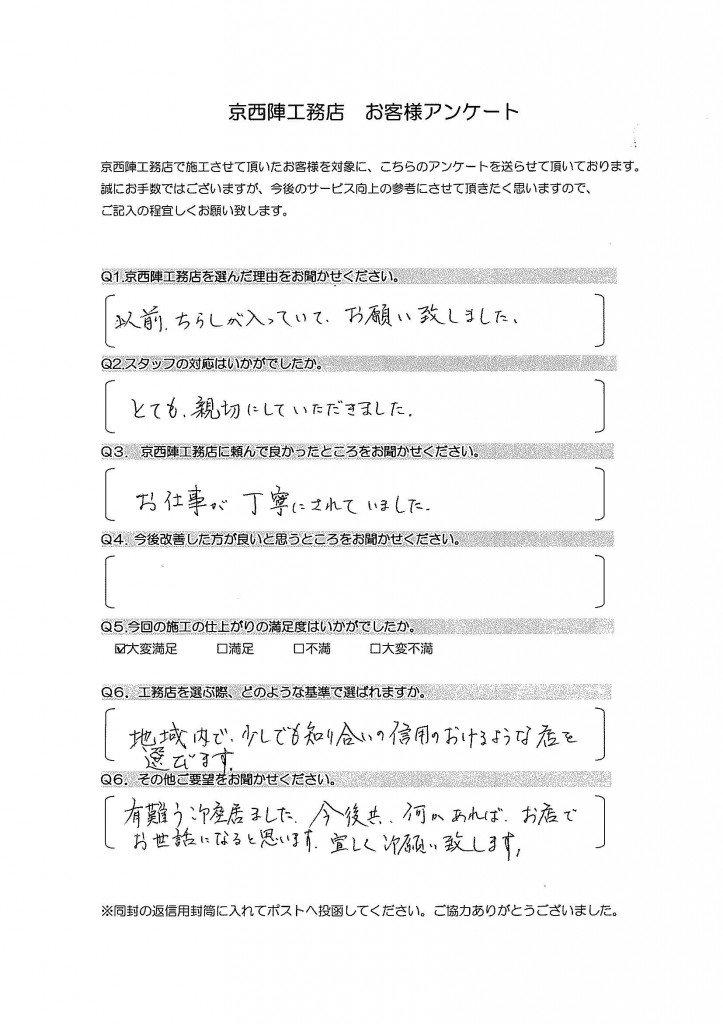 京西陣工務店　お客様アンケート
京西陣工務店で施工させて頂いたお客様を対象に、こちらのアンケートを送らせて頂いております。
誠にお手数ではございますが、今後のサービス向上の参考にさせて頂きたく思いますので、
ご記入の程宜しくお願い致します。
Q1.京西陣工務店を選んだ理由をお聞かせください。
以前、ちらしが入っていて、お願い致しました、
Q2.スタッフの対応はいかがでしたか。
とても、親切にしていただきました、
Q3．京西陣工務店に頼んで良かったところをお聞かせください。
お仕事が丁寧にされていました、
Q4．今後改善した方が良いと思うところをお聞かせください。
Q5.今回の施工の仕上がりの満足度はいかがでしたか。
☑大変満足　□満足　□不満　□大変不満
Q6．工務店を選ぶ際、どのような基準で選ばれますか。
地域内で、少しでも知り合いの信用のおけるような店を
選びます、
Q6．その他ご要望をお聞かせください。
有難う御座居ました、今後共、何かあれば、お店で
お世話になると思います、宜しく御願い致します、
※同封の返信用封筒に入れてポストへ投函してください。ご協力ありがとうございました。